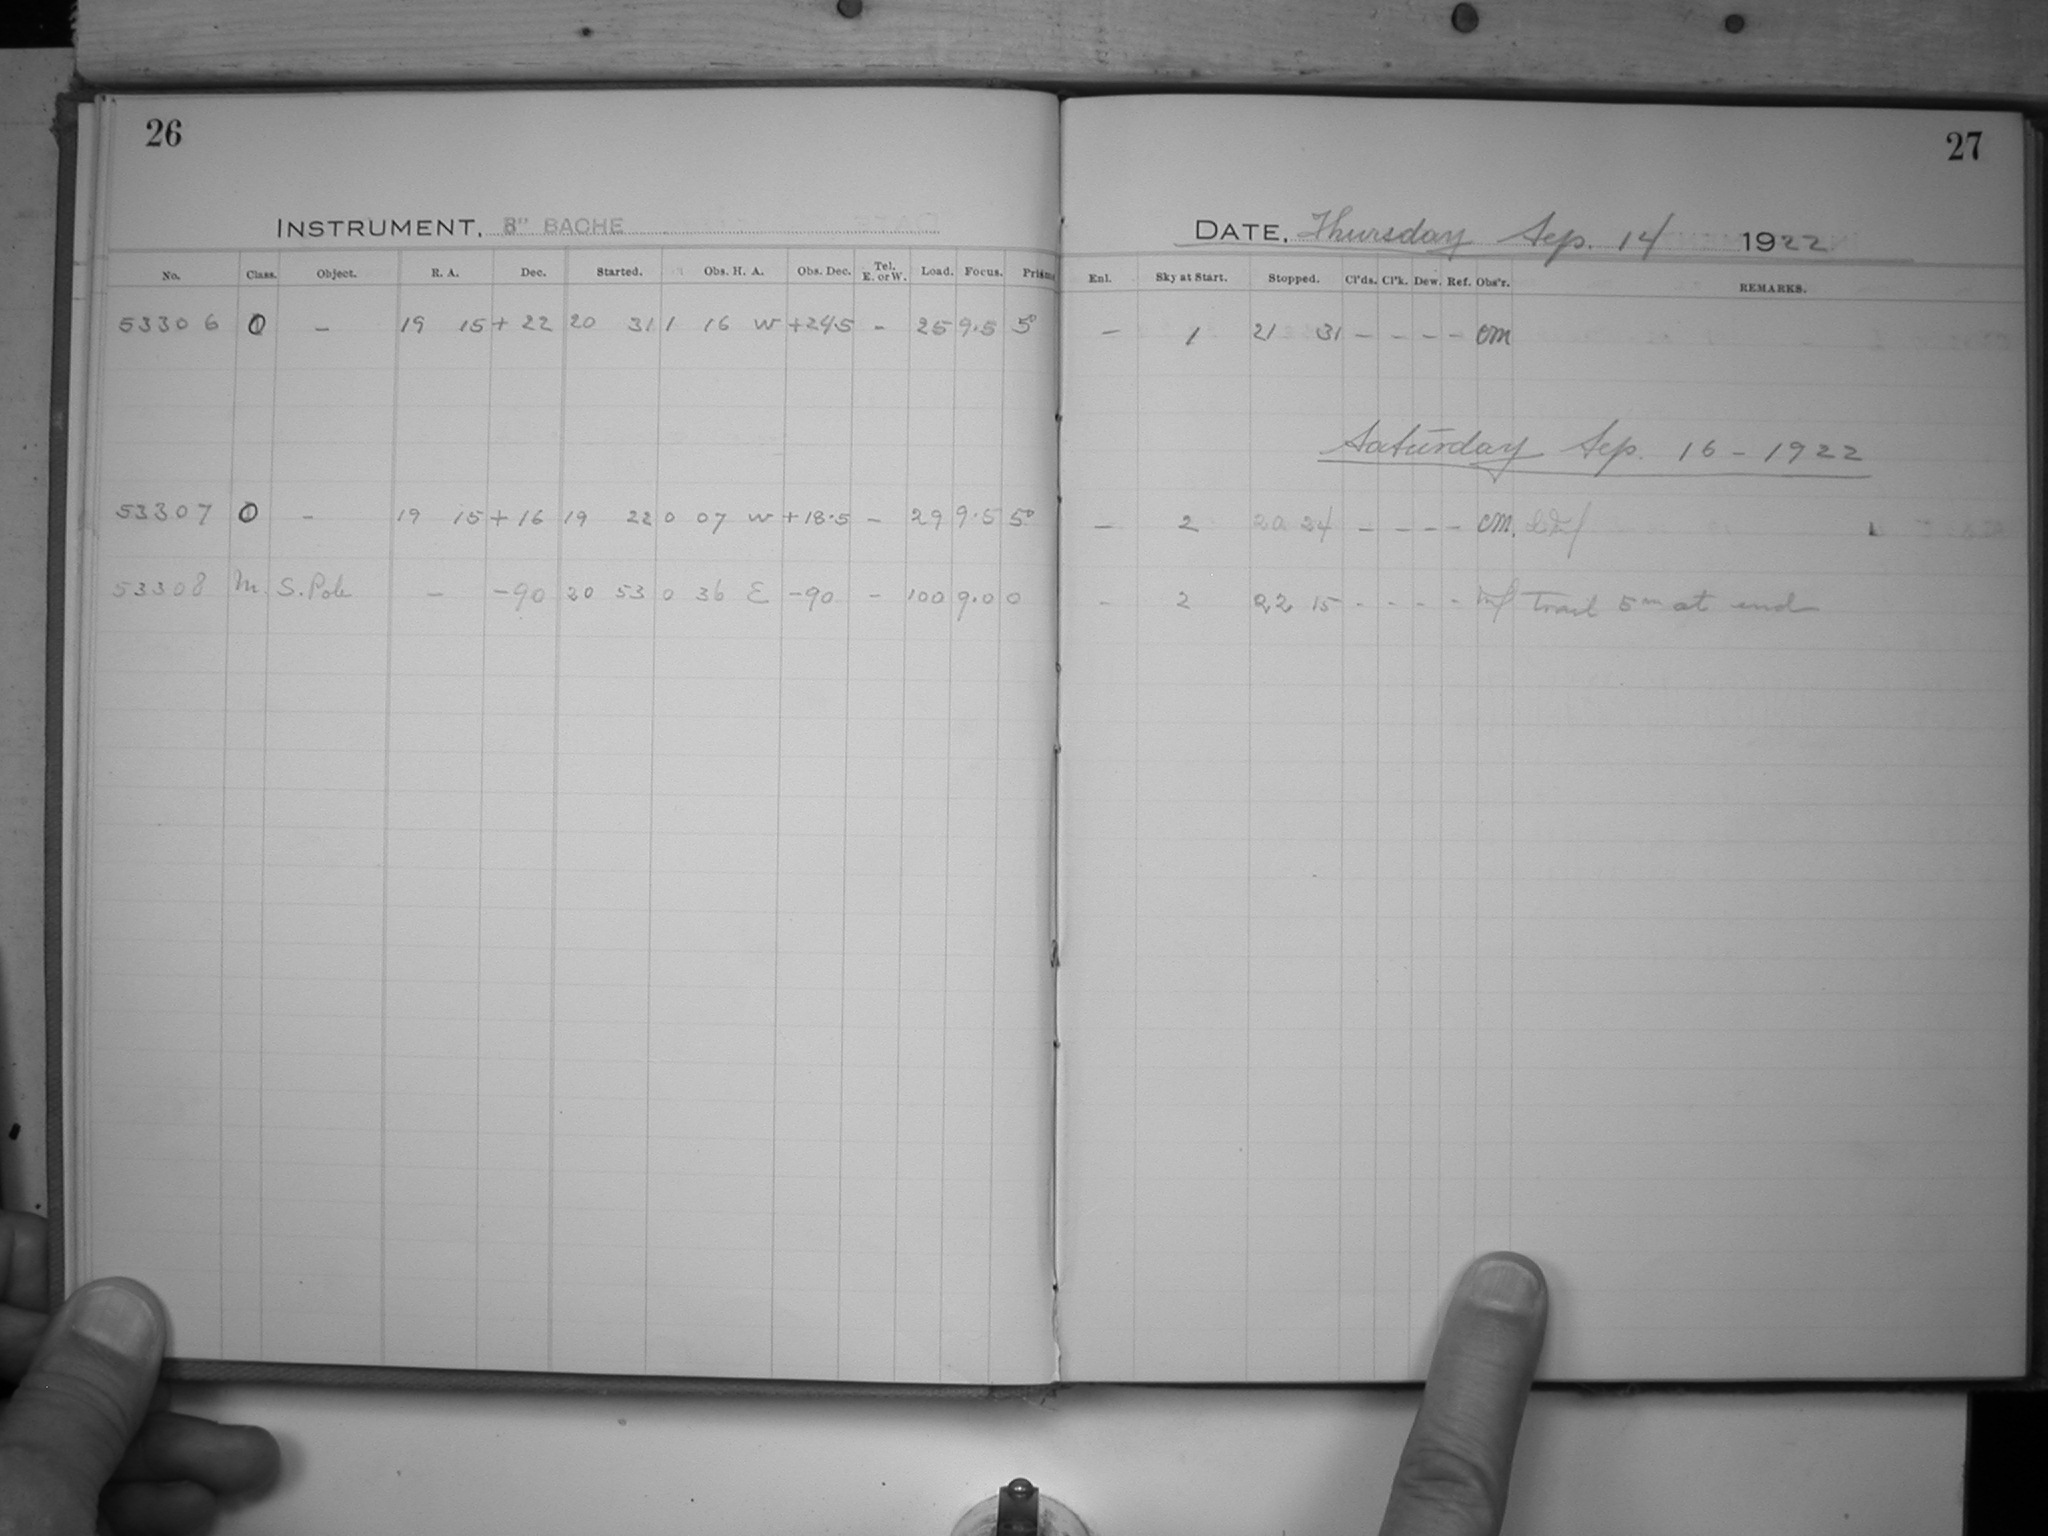 26
INSTRUMENT, 8" BACHE
No. Class. Object. R. A. Dec. Started. Obs. H. A. Obs. Dec. Tel. E. or W. Load. Focus. Prisms
53306 O – 19 15 + 22 20 31 1 16 W +24.5 – 25 9.5 5°
53307 O – 19 15 + 16 19 22 0 07 W +18.5 – 29 9.5 5°
53308 M. S. Pole – -90 20 53 0 36 E -90 – 100 9.0 0
27
DATE, Thursday Sep. 14 1922
Enl. Sky at Start. Stopped. Cl'ds. Cl'k. Dew. Ref. Obs'r. REMARKS.
– 1 21 31 – – – – OM
Saturday Sep. 16 - 1922
– 2 20 24 – – – – OM.
– 2 22 15 – – – – Trail 5m at end